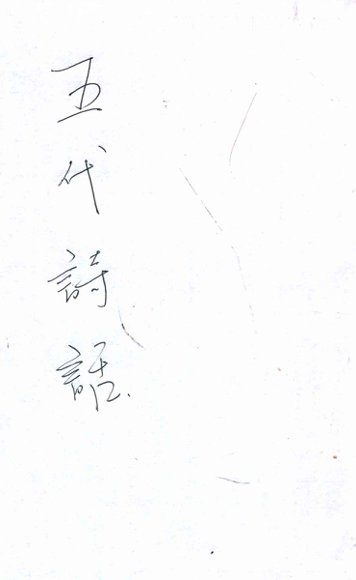 五代詩話